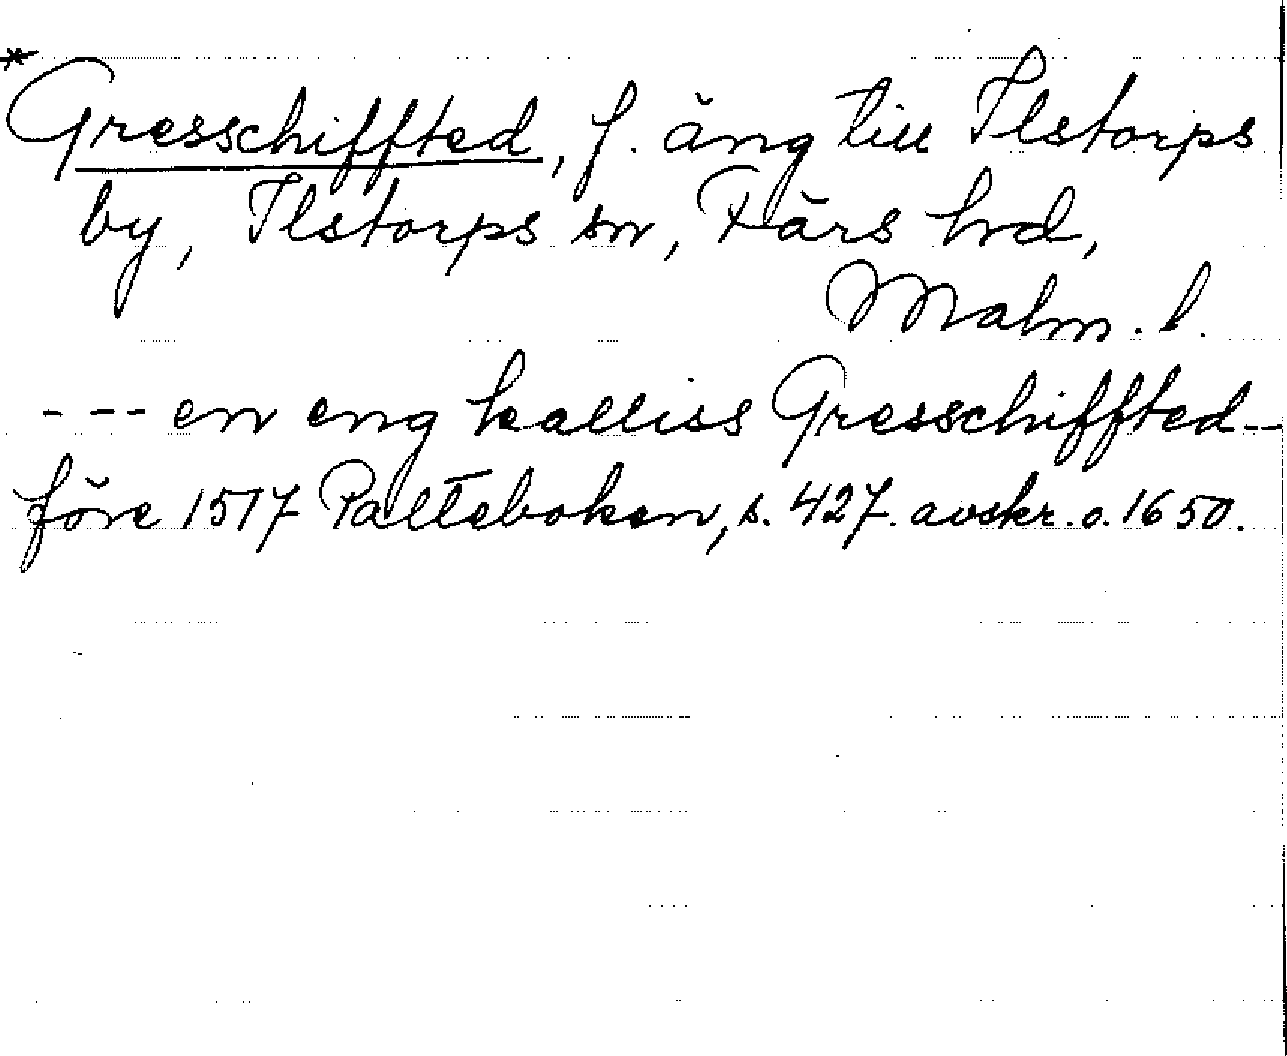 *
Gresschiffted, f. äng till Ilstorps
by, Ilstorps sn, Färs hd,
Malm. l.
--- en eng kalliss Gresschiffted--
före 1517 Palteboken, s. 427. avskr. o. 1650.